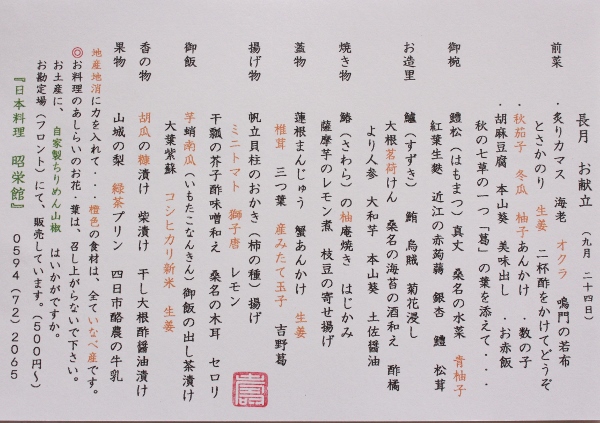 長月　お献立　（九月　二十四日）
前菜　・炙りカマス　海老　オクラ　鳴門の若布
とさかのり　生姜　二杯酢をかけてどうぞ
・秋茄子　冬瓜　柚子あんかけ　・数の子
・胡麻豆腐　本山葵　美味出し　・お赤飯
秋の七草の一つ「葛」の葉を添えて・・・
御椀　鱧松（はもまつ）真丈　桑名の水菜　青柚子
紅葉生麩　近江の赤蒟蒻　銀杏　鱧　松茸
お造里　鱸（すずき）　鮪　烏賊　菊花浸し
大根茗荷けん　桑名の海苔の酒和え　酢橘
より人参　大和芋　本山葵　土佐醤油
焼き物　鰆（さわら）の柚庵焼き　はじかみ
薩摩芋のレモン煮　枝豆の寄せ揚げ
蓋物　蓮根まんじゅう　蟹あんかけ　生姜
椎茸　三つ葉　産みたて玉子　吉野葛
揚げ物　帆立貝柱のおかき（柿の種）揚げ
ミニトマト　獅子唐　レモン
干瓢の芥子酢味噌和え　桑名の木耳　セロリ
御飯　芋蛸南瓜（いもたこなんきん）御飯の出し茶漬け
大葉紫蘇　コシヒカリ新米　生姜
香の物　胡瓜の糠漬け　柴漬け　干し大根酢醤油漬け
果物　山城の梨　緑茶プリン　四日市酪農の牛乳
地産地消に力を入れて・・・橙色の食材は、全ていなべ産です。
◎お料理のあしらいのお花・葉は、召し上がらないで下さい。
お土産に、自家製ちりめん山椒　はいかがですか。
お勘定場（フロント）にて、販売しています。（５００円～）
『日本料理　昭栄館』　０５９４（７２）２０６５
壽